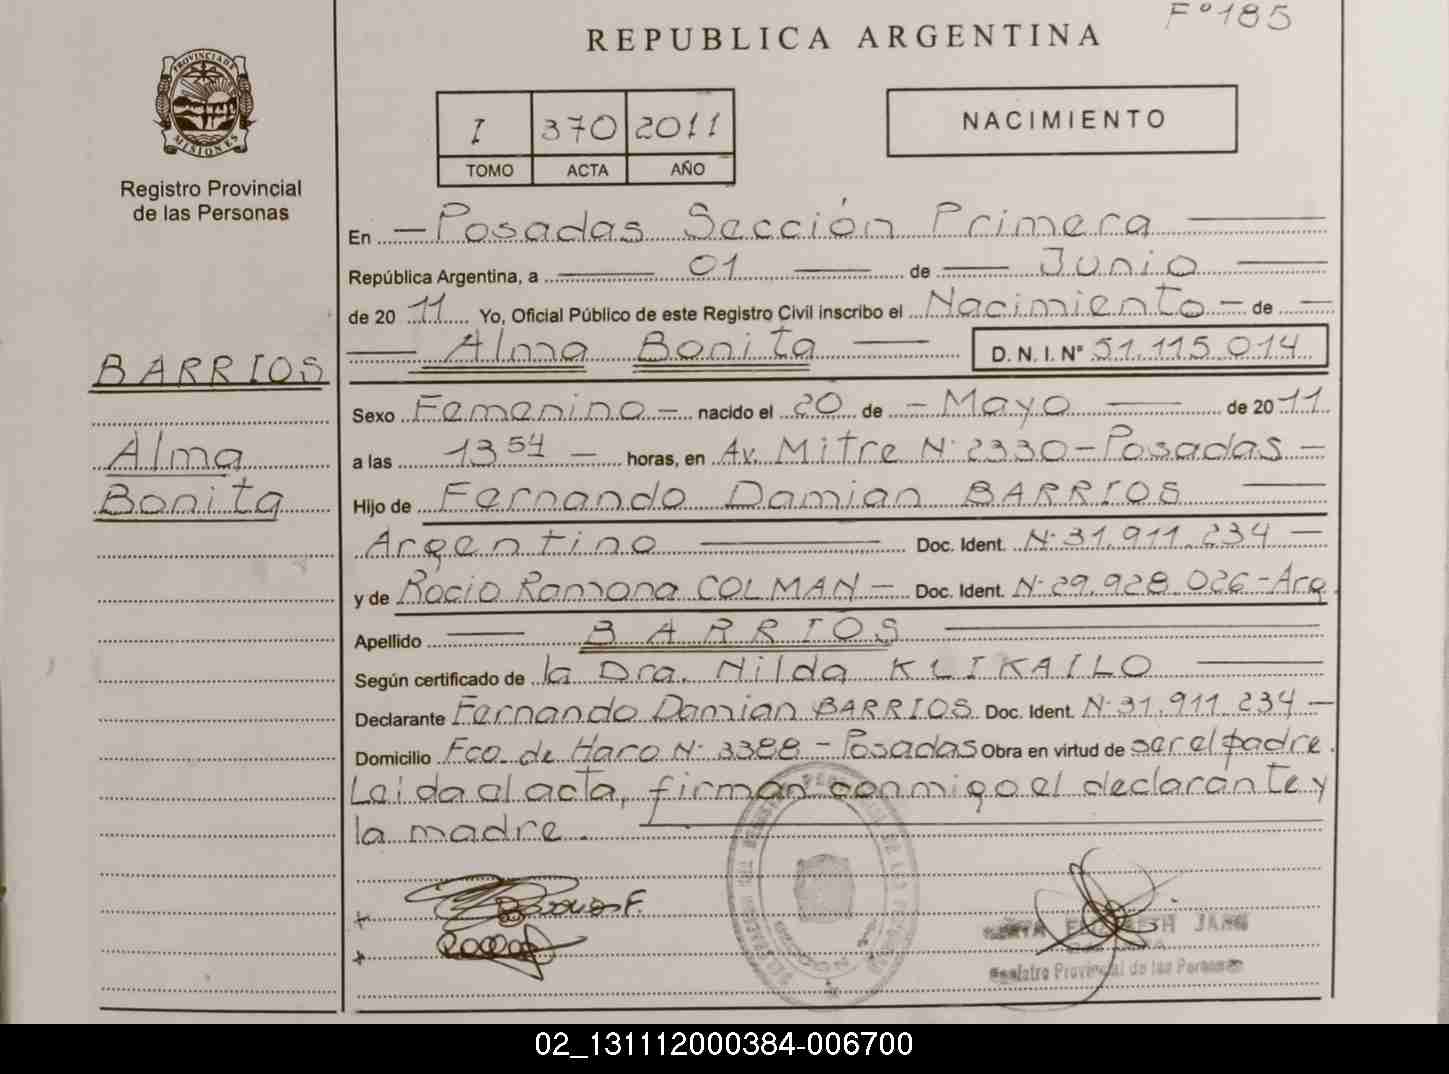 F° 185
REPUBLICA ARGENTINA
PROVINCIA DE
MISIONES
Registro Provincial
de las Personas
I 370 2011
TOMO ACTA AÑO
NACIMIENTO
En - Posadas Sección Primera
República Argentina, a 01 de Junio
de 20 11 Yo, Oficial Público de este Registro Civil inscribo el Nacimiento - de
Alma Bonita D. N. I. N° 51.115.014
BARRIOS
Alma
Bonita
Sexo Femenino - nacido el 20 de - Mayo de 20 11
a las 13 54 - horas, en Av. Mitre N° 2330 - Posadas -
Hijo de Fernando Damian BARRIOS
Argentino Doc. Ident. N° 31.911.234 -
y de Rocio Ramona COLMAN - Doc. Ident. N° 29.928.026 - Arg.
Apellido BARRIOS
Según certificado de la Dra. Nilda KLIKAILO
Declarante Fernando Damian BARRIOS Doc. Ident. N° 31.911.234 -
Domicilio Fco. de Haro N° 3388 - Posadas Obra en virtud de ser el padre.
Leida el acta, firman conmigo el declarante y
la madre.
Registro Provincial de las Personas
02_131112000384-006700